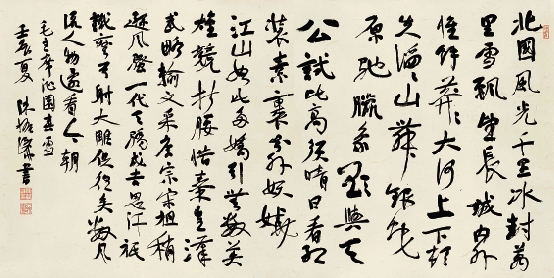 北國風光千里冰封萬
里雪飄望長城內外
惟餘莽莽大河上下頓
失滔滔山舞銀蛇
原馳臘象欲與天
公試比高須晴日看紅
裝素裹分外妖嬈
江山如此多嬌引無數英
雄競折腰惜秦皇漢
武略輸文采唐宗宋祖稍
遜風騷一代天驕成吉思汗祇
識彎弓射大雕俱往矣數風
流人物還看今朝
毛主席沁園春雪
壬辰夏 陳振濂書